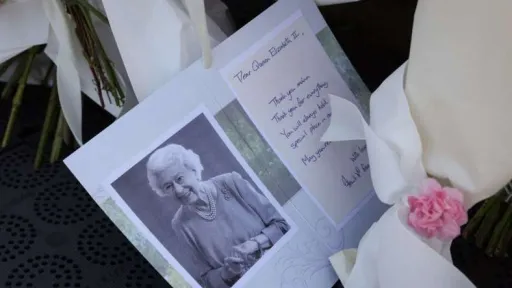 Dear Queen Elizabeth II,
Thank you ma'am
Thank you for everything
You will always hold
special place in
May you
With